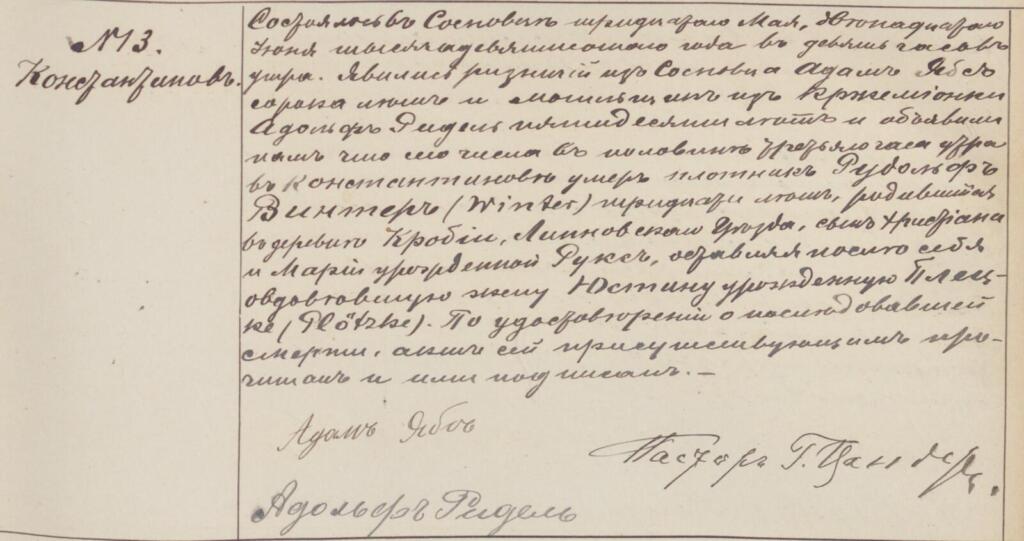 №13.
Константиновъ.
Состоялось въ Сосновицѣ тридцатаго Мая, двѣнадцатаго
Іюня тысяча девятисотаго года въ девять часовъ
утра. Явились рѣзчикъ изъ Сосновца Адамъ Ябсъ
сорока лѣтъ и мотельщикъ изъ Кржеміонки
Адольфъ Ридель пятидесяти лѣтъ и объявили
намъ что сего числа въ половинѣ третьяго часа утра
въ Константиновѣ умеръ плотникъ Рудольфъ
Винтеръ (Winter) тридцати лѣтъ, родившійся
въ деревнѣ Кробіи, Липновскаго Уѣзда, сынъ Христіана
и Маріи урожденной Руксъ, оставляя послѣ себя
овдовѣвшую жену Юстину урожденную Плец-
ке (Plötzke). По удостовѣреніи о послѣдовавшей
смерти, актъ сей присутствующимъ про-
читанъ и ими подписанъ. —
Адамъ Ябсъ
Пасторъ Г. Цандеръ.
Адольфъ Ридель